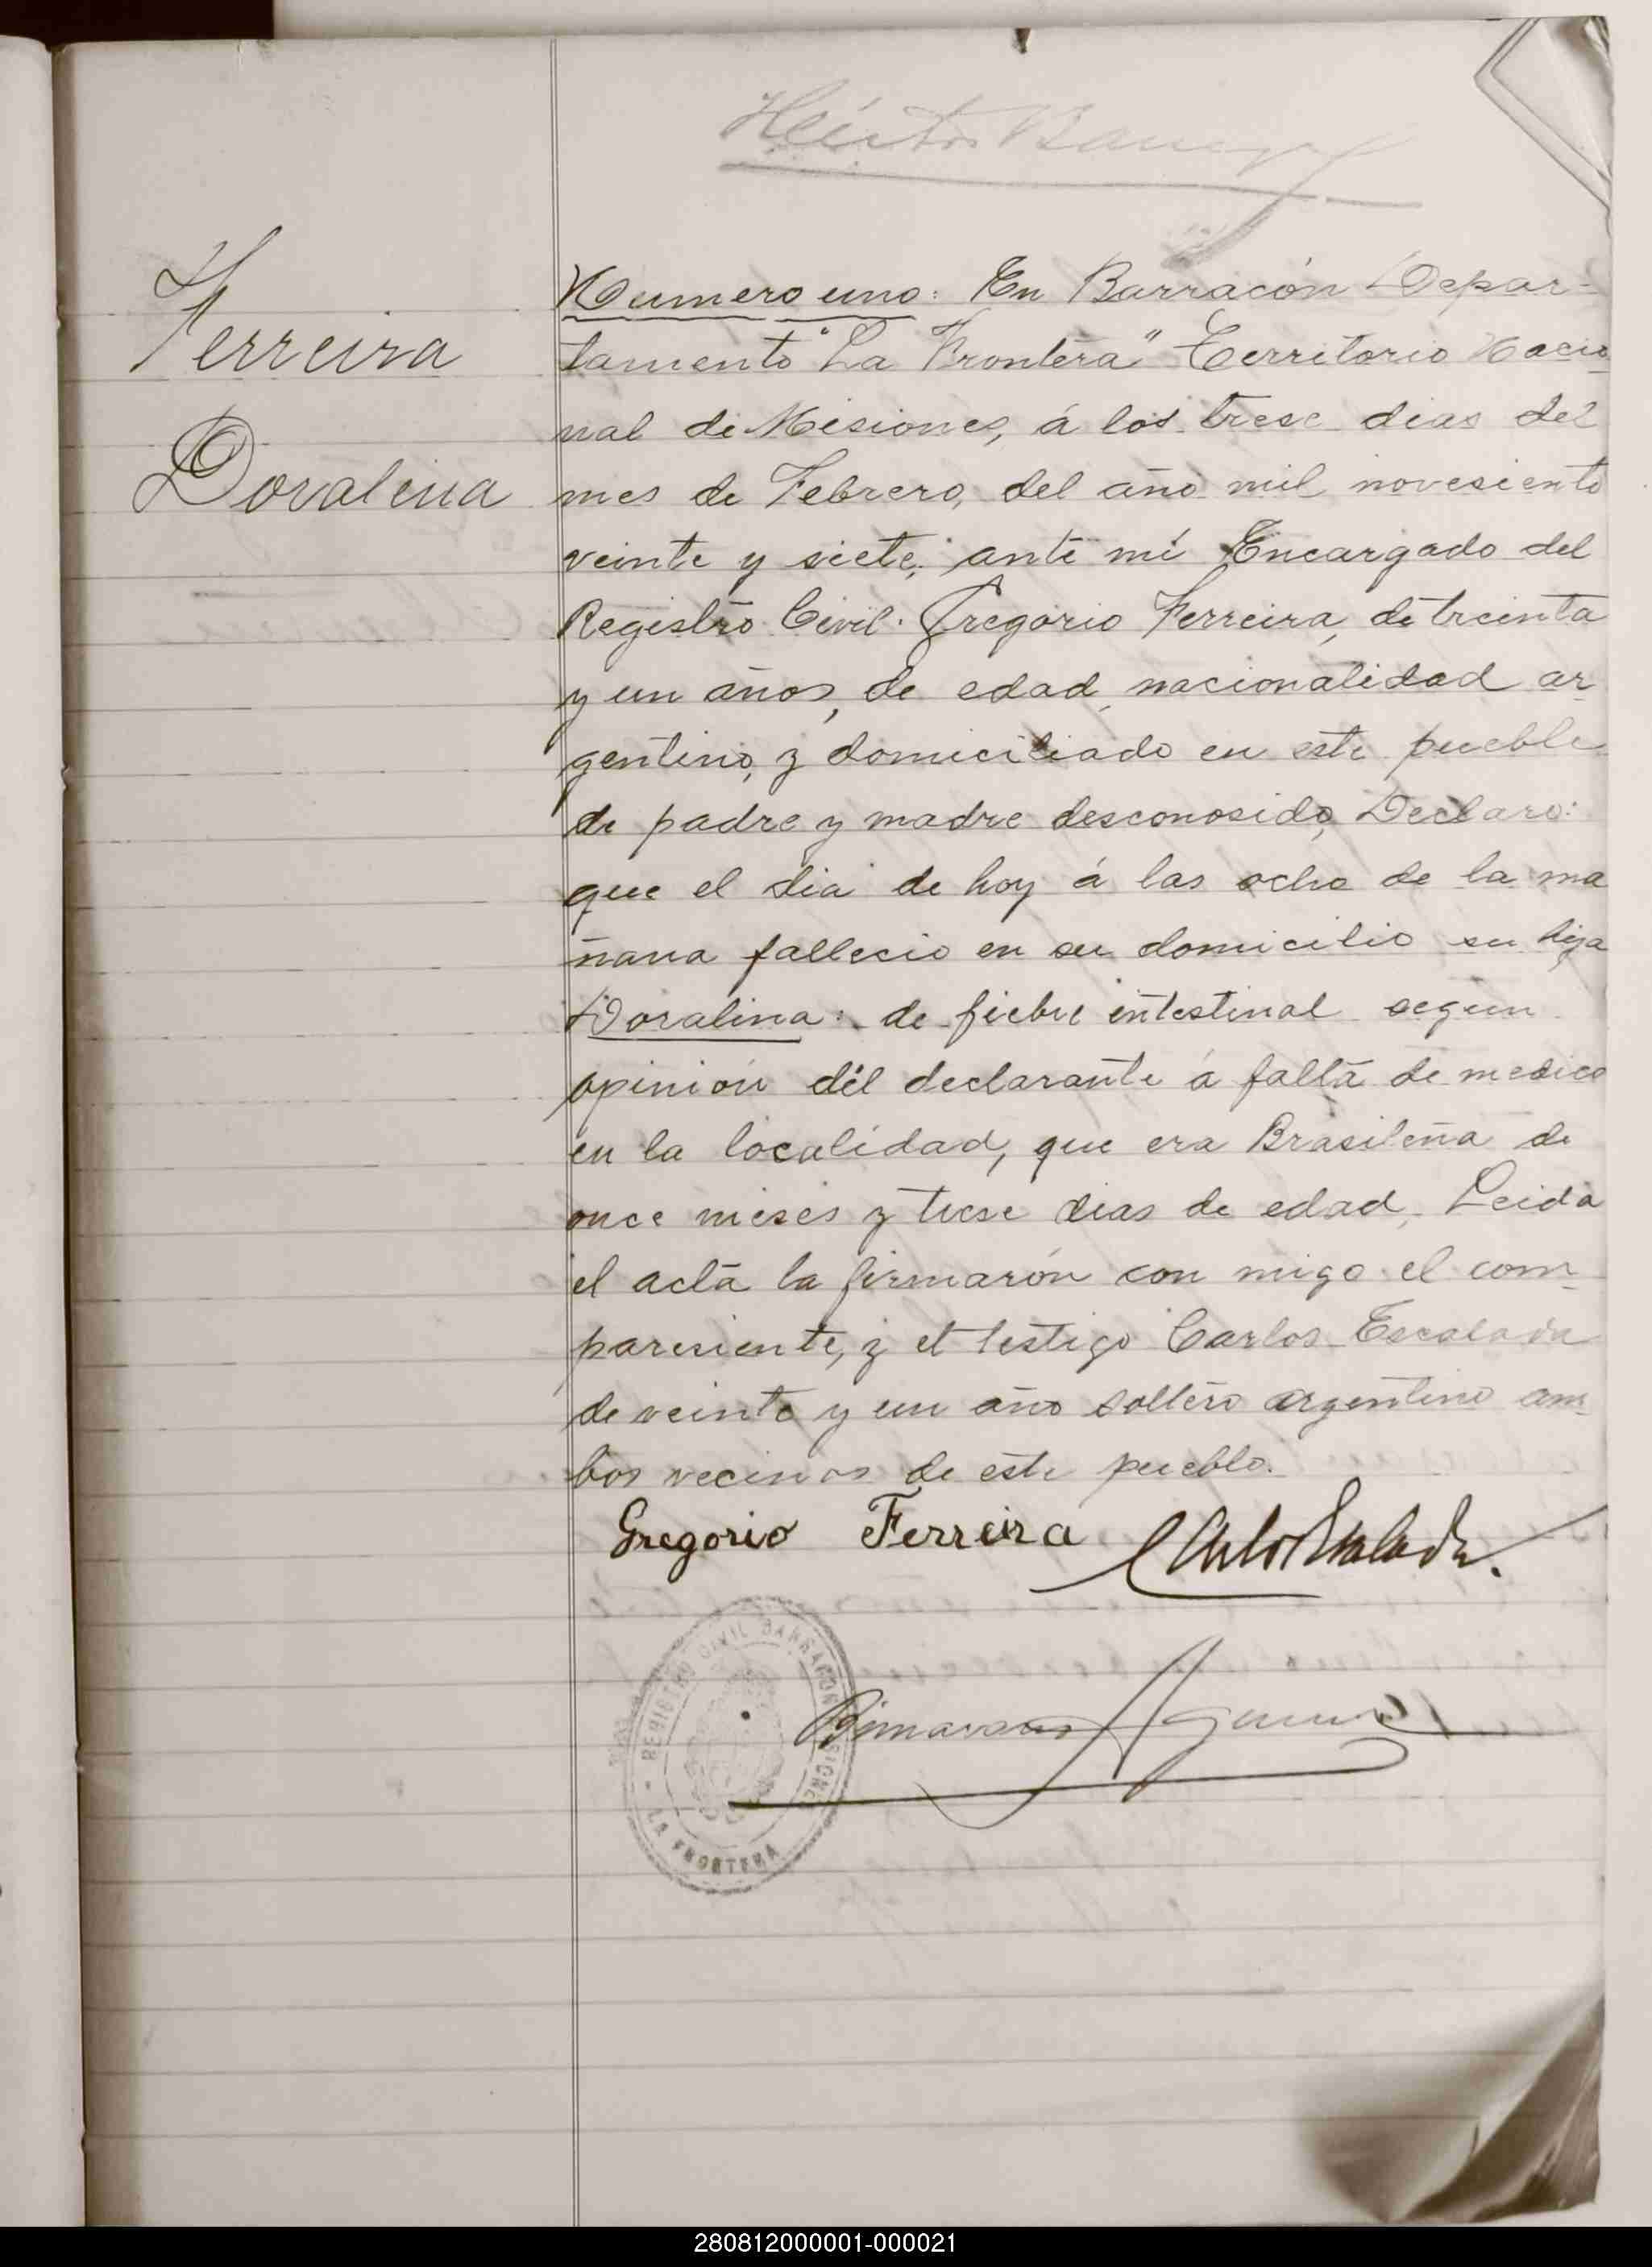 Héctor
Ferreira
Doralina
Numero uno: En Barracón Depar-
tamento "La Frontera" Territorio Nacio
nal de Misiones, á los trese dias del
mes de Febrero, del año mil novesiento
veinte y siete; ante mí Encargado del
Registro Civil. Gregorio Ferreira, de treinta
y un años, de edad, nacionalidad ar
gentino, y domiciliado en este pueblo
de padre y madre desconosido, Declaro:
que el dia de hoy á las ocho de la ma
ñana fallecio en su domicilio su hija
Doralina: de fiebre intestinal segun
opinión del declarante á falta de medico
en la localidad, que era Brasileña de
once meses y trese dias de edad, Leida
el acta la firmarón con migo el com
paresiente, y el testigo Carlos Escalada
de veinte y un año soltero argentino am
bos vecinos de este pueblo.
Gregorio Ferreira Carlos Escalada.
REGISTRO CIVIL BARRACON MISIONES
LA FRONTERA
280812000001-000021